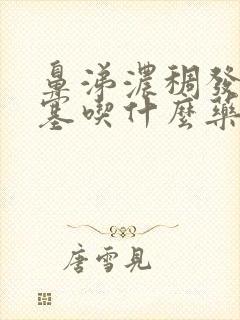 鼻涕濃稠發
塞喫什麼藥
唐雪見